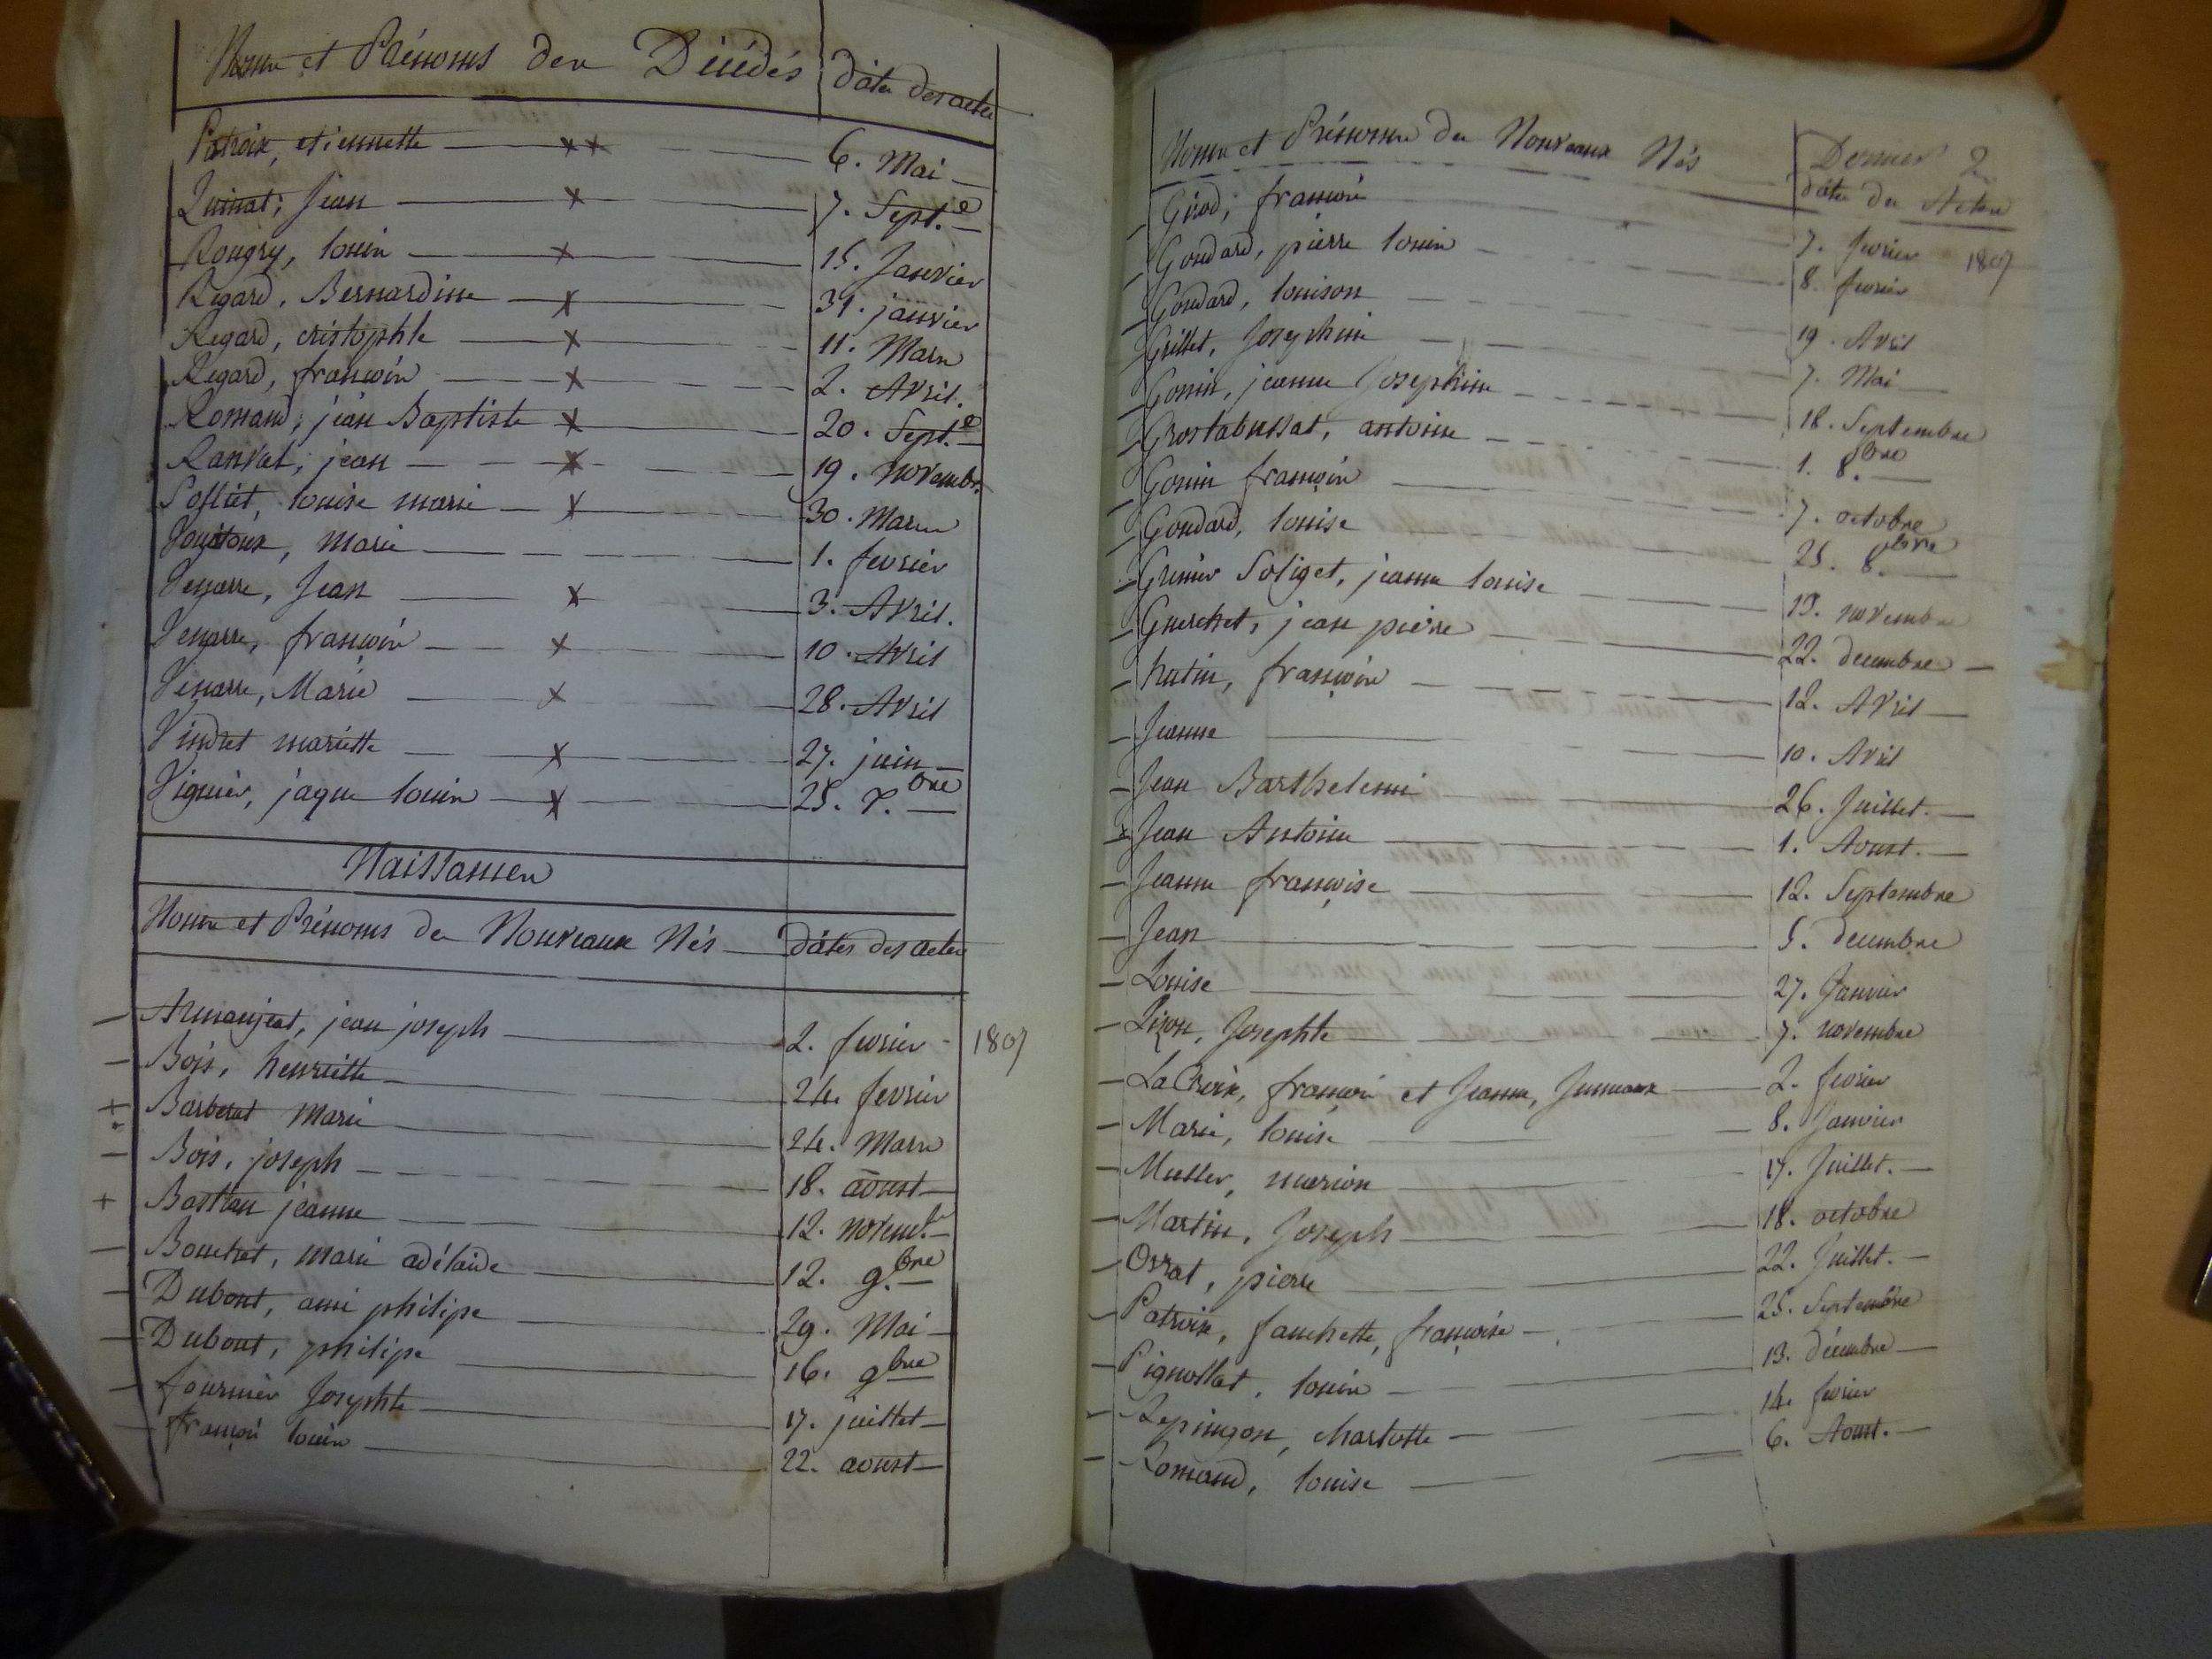 Noms et Prénoms des Décédés dâtes des actes
Patroix, etiennette 6. Mai
Quinat, Jean 7. Sept.e
Rougry, louis 15. Janvier
Regard, Bernardine 31. janvier
Regard, cristophle 11. Mars
Regard, françois 2. Avril.
Romand, jean Baptiste 20. Sept.e
Ranvel, jean 19. novembr.
Soffiet, louise marie 30. Mars
marie 1. fevrier
Venarre, Jean 3. Avril.
Venarre, françois 10. Avril
Venarre, Marie 28. Avril
Vindret mariette 27. juin
Viguier, jaque louis 25. 7.bre
Naissances
Noms et Prénoms des Nouveaux Nés dâtes des actes
Armanjeat, jean joseph 2. fevrier 1807
Bois, henriette 24. fevrier
Barberat Marie 24. Mars
Bois, joseph 18. aoust
Bastian jeanne 12. novemb.
Bouchet, marie adélaïde 12. 9.bre
Dubout, ami philipe 29. Mai
Dubout, philipe 16. 9bre
fournier Josephte 17. juillet
françois louis 22. aoust
Dernier 2
Noms et Prénoms des Nouveaux Nés dâtes des Actes
Girod, françois 7. fevrier 1807
Goudard, pierre louis 8. fevrier
Goudard, louison 19. Avril
Grillet, Josephine 7. Mai
Gonin, jeanne Josephine 18. Septembre
Grostabussat, antoine 1. 8.bre
Gonin françois 7. octobre
Goudard, louise 25. 8.bre
Grenier Soliget, jeanne louise 19. novembre
Guerchet, jean pierre 22. decembre
hutin, françoise 12. Avril
Jeanne 10. Avril
Jean Barthelemi 26. Juillet.
Jean Antoine 1. Aoust.
Jeanne françoise 12. Septembre
Jean 5. decembre
Louise 27. Janvier
Lizon, Josephte 7. novembre
La Croix, françois et Jeanne, Jumeaux 2. fevrier
Marie, louise 8. Janvier
Muller, marion 17. Juillet.
Martin, Joseph 18. octobre
Orrat, pierre 22. Juillet.
Patroix, fanchette, françoise 25. Septembre
Pignollet, louis 13. décembre
charlotte 14. fevrier
Romand, louise 6. Aoust.